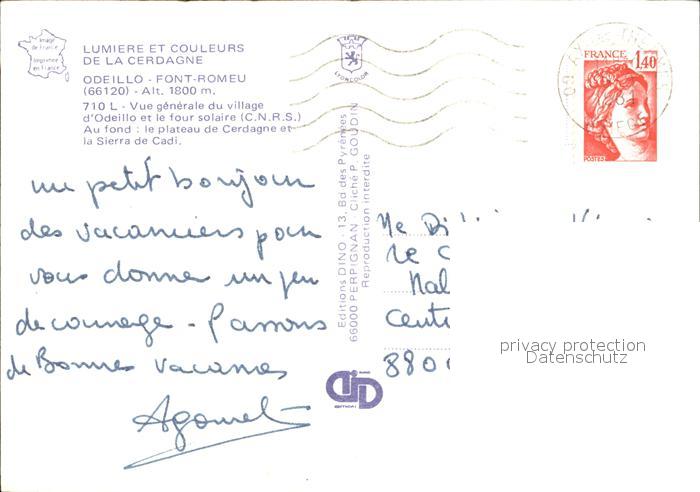 Image
de France
Imprimée
en France
LUMIERE ET COULEURS
DE LA CERDAGNE
ODEILLO - FONT-ROMEU
(66120) - Alt. 1800 m.
710 L - Vue générale du village
d'Odeillo et le four solaire (C.N.R.S.)
Au fond : le plateau de Cerdagne et
la Sierra de Cadi.
un petit bonjour
des vacanciers pour
vous donner un peu
de courage - Passons
de Bonnes vacances
LYONCOLOR
Editions DINO - 13, Bd des Pyrénées
66000 PERPIGNAN - Cliché P. GOUDIN
Reproduction interdite
EDITIONS
FRANCE
1,40
POSTES
privacy protection
Datenschutz